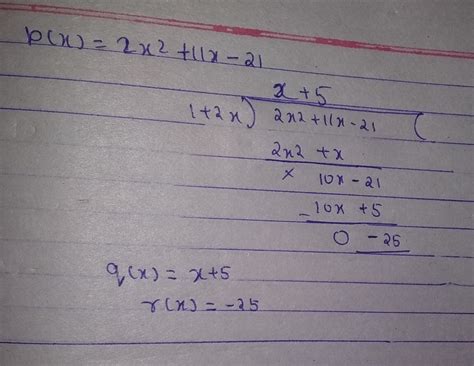 p(x) = 2x² + 11x - 21
x + 5
1+2x) 2x² + 11x - 21 (
2x² + x
x 10x - 21
- 10x + 5
0 - 25
q(x) = x+5
r(x) = -25